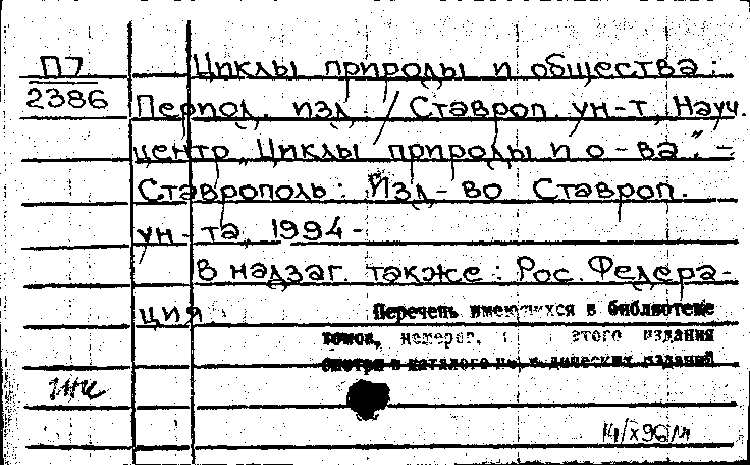 П7
2386
Циклы природы и общества:
Период. изд. / Ставроп. ун-т, Науч.
центр „Циклы природы и о-ва". -
Ставрополь: Изд-во Ставроп.
ун-та, 1994-
В надзаг. также: Рос. Федера-
ция
Перечень имеющихся в библиотеке
томов, номеров, этого издания
смотри в каталоге периодических изданий